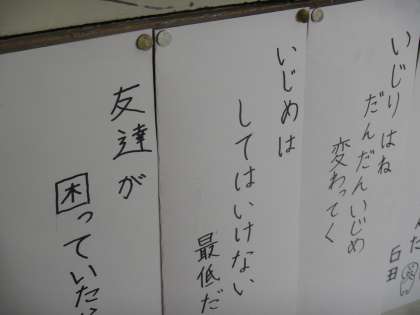 いじりはね
だんだんいじめ
変わってく
石田
いじめは
してはいけない
最低だ
友達が
困っていたら